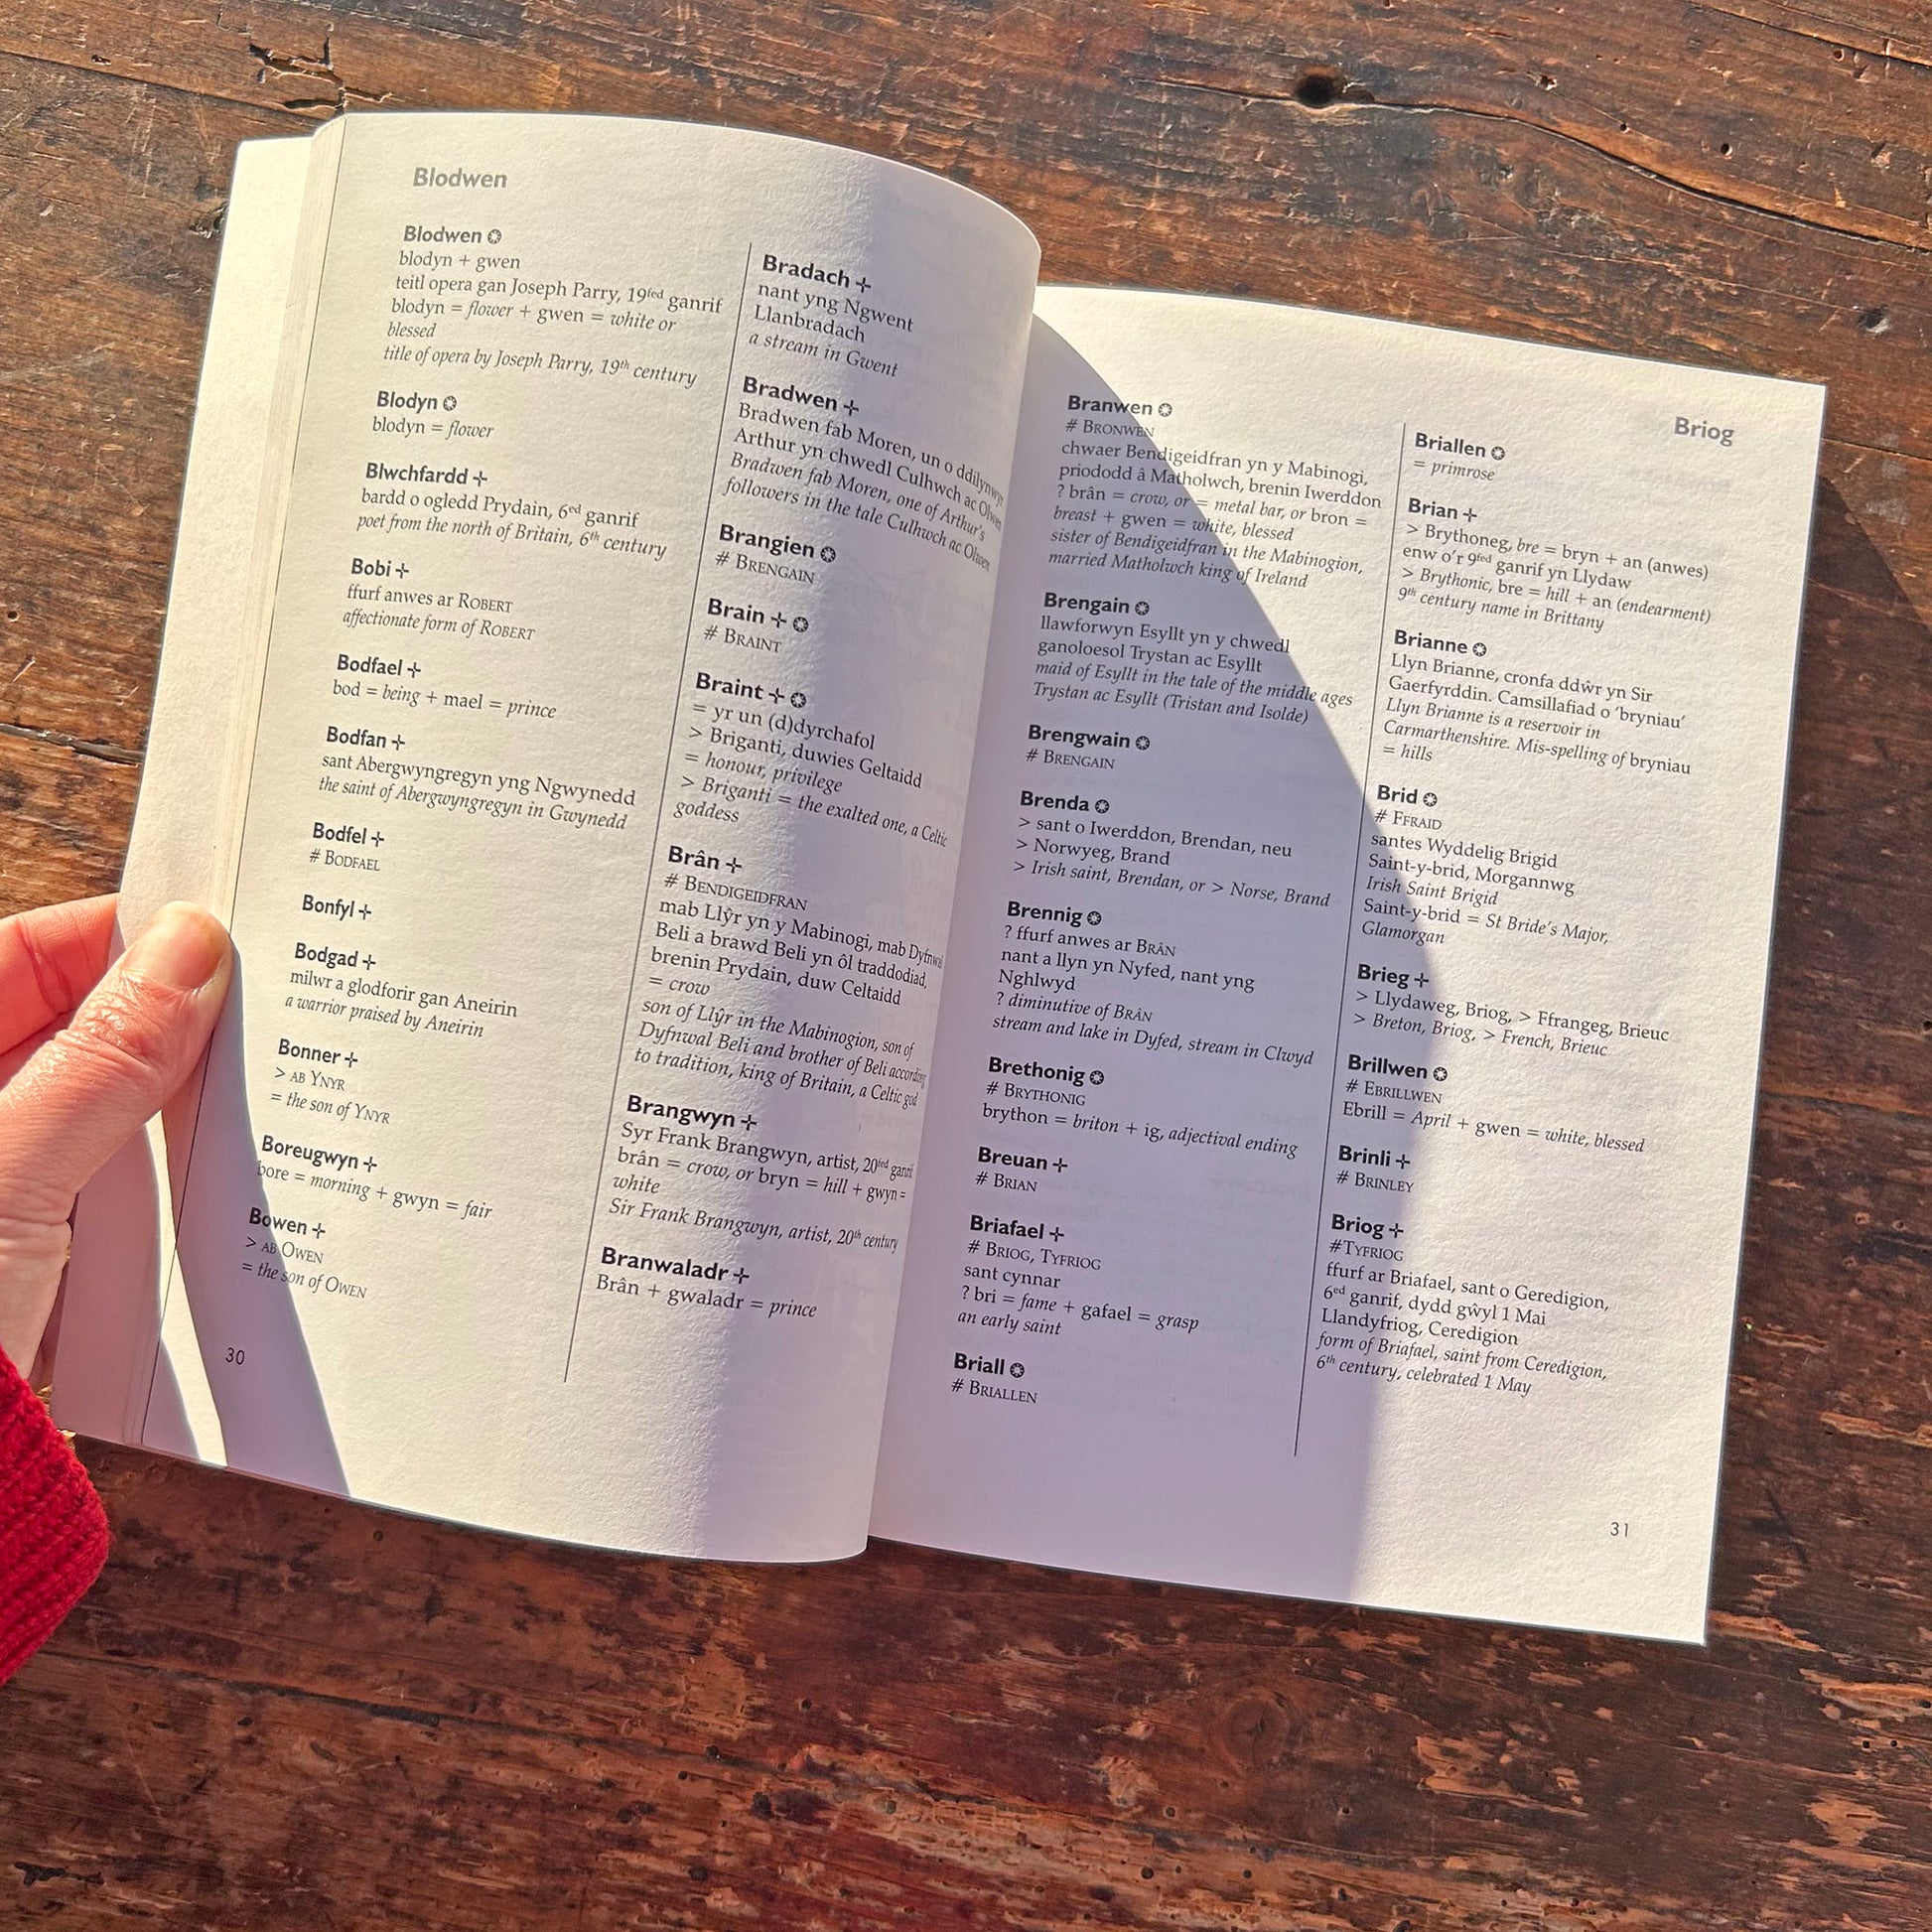 Blodwen
Blodwen
blodyn + gwen
teitl opera gan Joseph Parry, 19fed ganrif
blodyn = flower + gwen = white or
blessed
title of opera by Joseph Parry, 19th century
Blodyn
blodyn = flower
Blwchfardd
bardd o ogledd Prydain, 6ed ganrif
poet from the north of Britain, 6th century
Bobi
ffurf anwes ar ROBERT
affectionate form of ROBERT
Bodfael
bod = being + mael = prince
Bodfan
sant Abergwyngregyn yng Ngwynedd
the saint of Abergwyngregyn in Gwynedd
Bodfel
# BODFAEL
Bonfyl
Bodgad
milwr a glodforir gan Aneirin
a warrior praised by Aneirin
Bonner
> AB YNYR
= the son of YNYR
Boreugwyn
bore = morning + gwyn = fair
Bowen
> AB OWEN
= the son of OWEN
30
Bradach
nant yng Ngwent
Llanbradach
a stream in Gwent
Bradwen
Bradwen fab Moren, un o ddilynwyr
Arthur yn chwedl Culhwch ac Olwen
Bradwen fab Moren, one of Arthur's
followers in the tale Culhwch ac Olwen
Brangien
# BRENGAIN
Brain
# BRAINT
Braint
= yr un (d)dyrchafol
> Briganti, duwies Geltaidd
= honour, privilege
> Briganti = the exalted one, a Celtic
goddess
Brân
# BENDIGEIDFRAN
mab Llŷr yn y Mabinogi, mab Dyfnwal
Beli a brawd Beli yn ôl traddodiad,
brenin Prydain, duw Celtaidd
= crow
son of Llŷr in the Mabinogion, son of
Dyfnwal Beli and brother of Beli according
to tradition, king of Britain, a Celtic god
Brangwyn
Syr Frank Brangwyn, artist, 20fed ganrif
brân = crow, or bryn = hill + gwyn =
white
Sir Frank Brangwyn, artist, 20th century
Branwaladr
Brân + gwaladr = prince
Briog
Branwen
# BRONWEN
chwaer Bendigeidfran yn y Mabinogi,
priododd â Matholwch, brenin Iwerddon
? brân = crow, or = metal bar, or bron =
breast + gwen = white, blessed
sister of Bendigeidfran in the Mabinogion,
married Matholwch king of Ireland
Brengain
llawforwyn Esyllt yn y chwedl
ganoloesol Trystan ac Esyllt
maid of Esyllt in the tale of the middle ages
Trystan ac Esyllt (Tristan and Isolde)
Brengwain
# BRENGAIN
Brenda
> sant o Iwerddon, Brendan, neu
> Norwyeg, Brand
> Irish saint, Brendan, or > Norse, Brand
Brennig
? ffurf anwes ar BRÂN
nant a llyn yn Nyfed, nant yng
Nghlwyd
? diminutive of BRÂN
stream and lake in Dyfed, stream in Clwyd
Brethonig
# BRYTHONIG
brython = briton + ig, adjectival ending
Breuan
# BRIAN
Briafael
# BRIOG, TYFRIOG
sant cynnar
? bri = fame + gafael = grasp
an early saint
Briall
# BRIALLEN
Briallen
= primrose
Brian
> Brythoneg, bre = bryn + an (anwes)
enw o'r 9fed ganrif yn Llydaw
> Brythonic, bre = hill + an (endearment)
9th century name in Brittany
Brianne
Llyn Brianne, cronfa ddŵr yn Sir
Gaerfyrddin. Camsillafiad o 'bryniau'
Llyn Brianne is a reservoir in
Carmarthenshire. Mis-spelling of bryniau
= hills
Brid
# FFRAID
santes Wyddelig Brigid
Saint-y-brid, Morgannwg
Irish Saint Brigid
Saint-y-brid = St Bride's Major,
Glamorgan
Brieg
> Llydaweg, Briog, > Ffrangeg, Brieuc
> Breton, Briog, > French, Brieuc
Brillwen
# EBRILLWEN
Ebrill = April + gwen = white, blessed
Brinli
# BRINLEY
Briog
#TYFRIOG
ffurf ar Briafael, sant o Geredigion,
6ed ganrif, dydd gŵyl 1 Mai
Llandyfriog, Ceredigion
form of Briafael, saint from Ceredigion,
6th century, celebrated 1 May
31